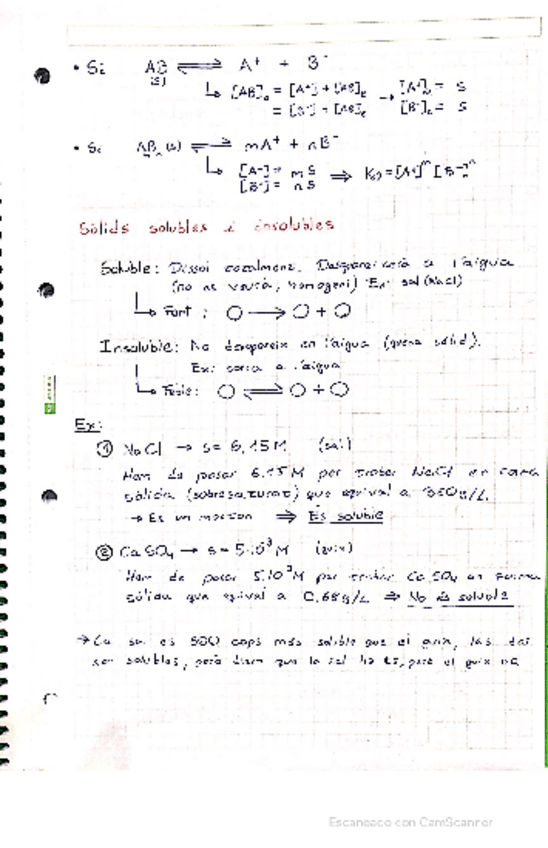 • Si AB(s) ⇌ A⁺ + B⁻
↳ [AB]₀ = [A⁺] + [AB]ₑ → [A⁺]ₑ = S
= [B⁻] + [AB]ₑ [B⁻]ₑ = S
• Si (s) ⇌ mA⁺ + nB⁻
↳ [A⁺] = mS
[B⁻] = nS ⇒ = [A⁺]ᵐ [B⁻]ⁿ
Sòlids solubles i insolubles
Soluble: Dissol totalment. Desapareixerà a l'aigua
(no es veurà, homogeni) Ex: sal (NaCl)
↳ Fort: ○ → ○ + ○
Insoluble: No desapareix en l'aigua (queda sòlid).
Ex: a l'aigua
↳ ○ ⇌ ○ + ○
Ex:
① NaCl → s = 6,15M (sal)
Hem de posar 6.15M per trobar NaCl en forma
sòlida (sobresaturat) que equival a 360g/L
→ Es un ⇒ És soluble
② CaSO₄ → s = 5·10³M (guix)
Hem de posar 5·10³M per trobar CaSO₄ en forma
sòlida que equival a 0,68g/L ⇒ No és soluble
→ La sal es cops més soluble que el guix, les dos
son solubles, però diem que la sal ho és, però el guix no
Escaneado con CamScanner